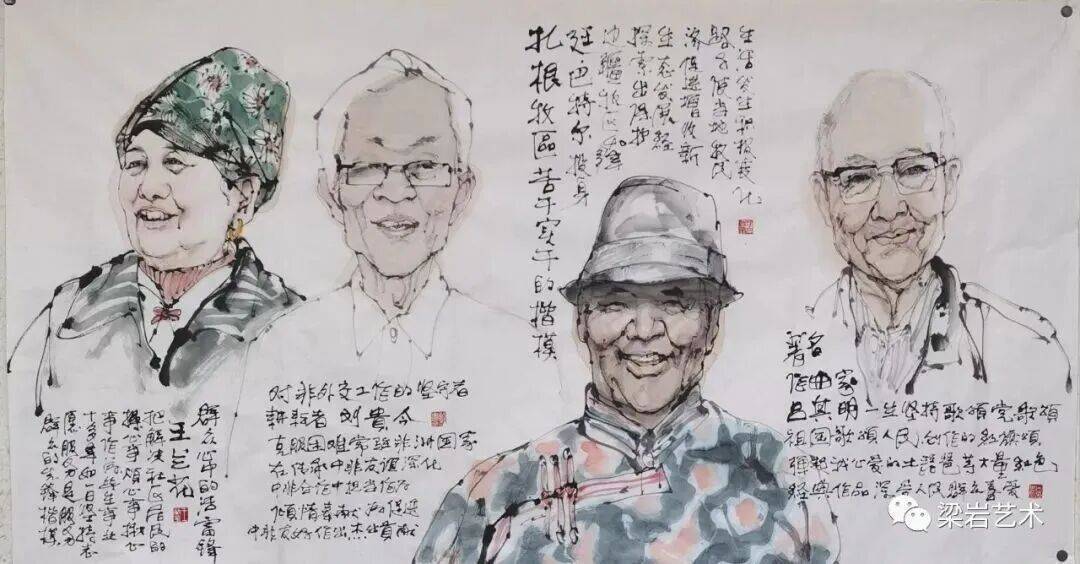 群众心中的活雷锋
王兰花
把解决社区居民的
操心事烦心事揪心
事作为终生事业
十多年如一日坚持志
愿服务是服务
群众的先锋楷模
对非外交工作的坚守者
耕耘者刘贵今
克服困难常驻非洲国家
在传承中非友谊深化
中非合作中担当作为
倾情奉献为促进
中非友好作出杰出贡献
扎根牧區苦干实干的楷模
廷·巴特尔投身
边疆牧区
探索出保护
生态发展经
济促进增收新
路子使当地牧民
生活发生积极变化
著名
作曲家
吕其明一生坚持歌颂党歌颂
祖国歌颂人民创作的红旗颂
弹起我心爱的土琵琶等大量红色
经典作品深受人民群众喜爱
梁岩艺术